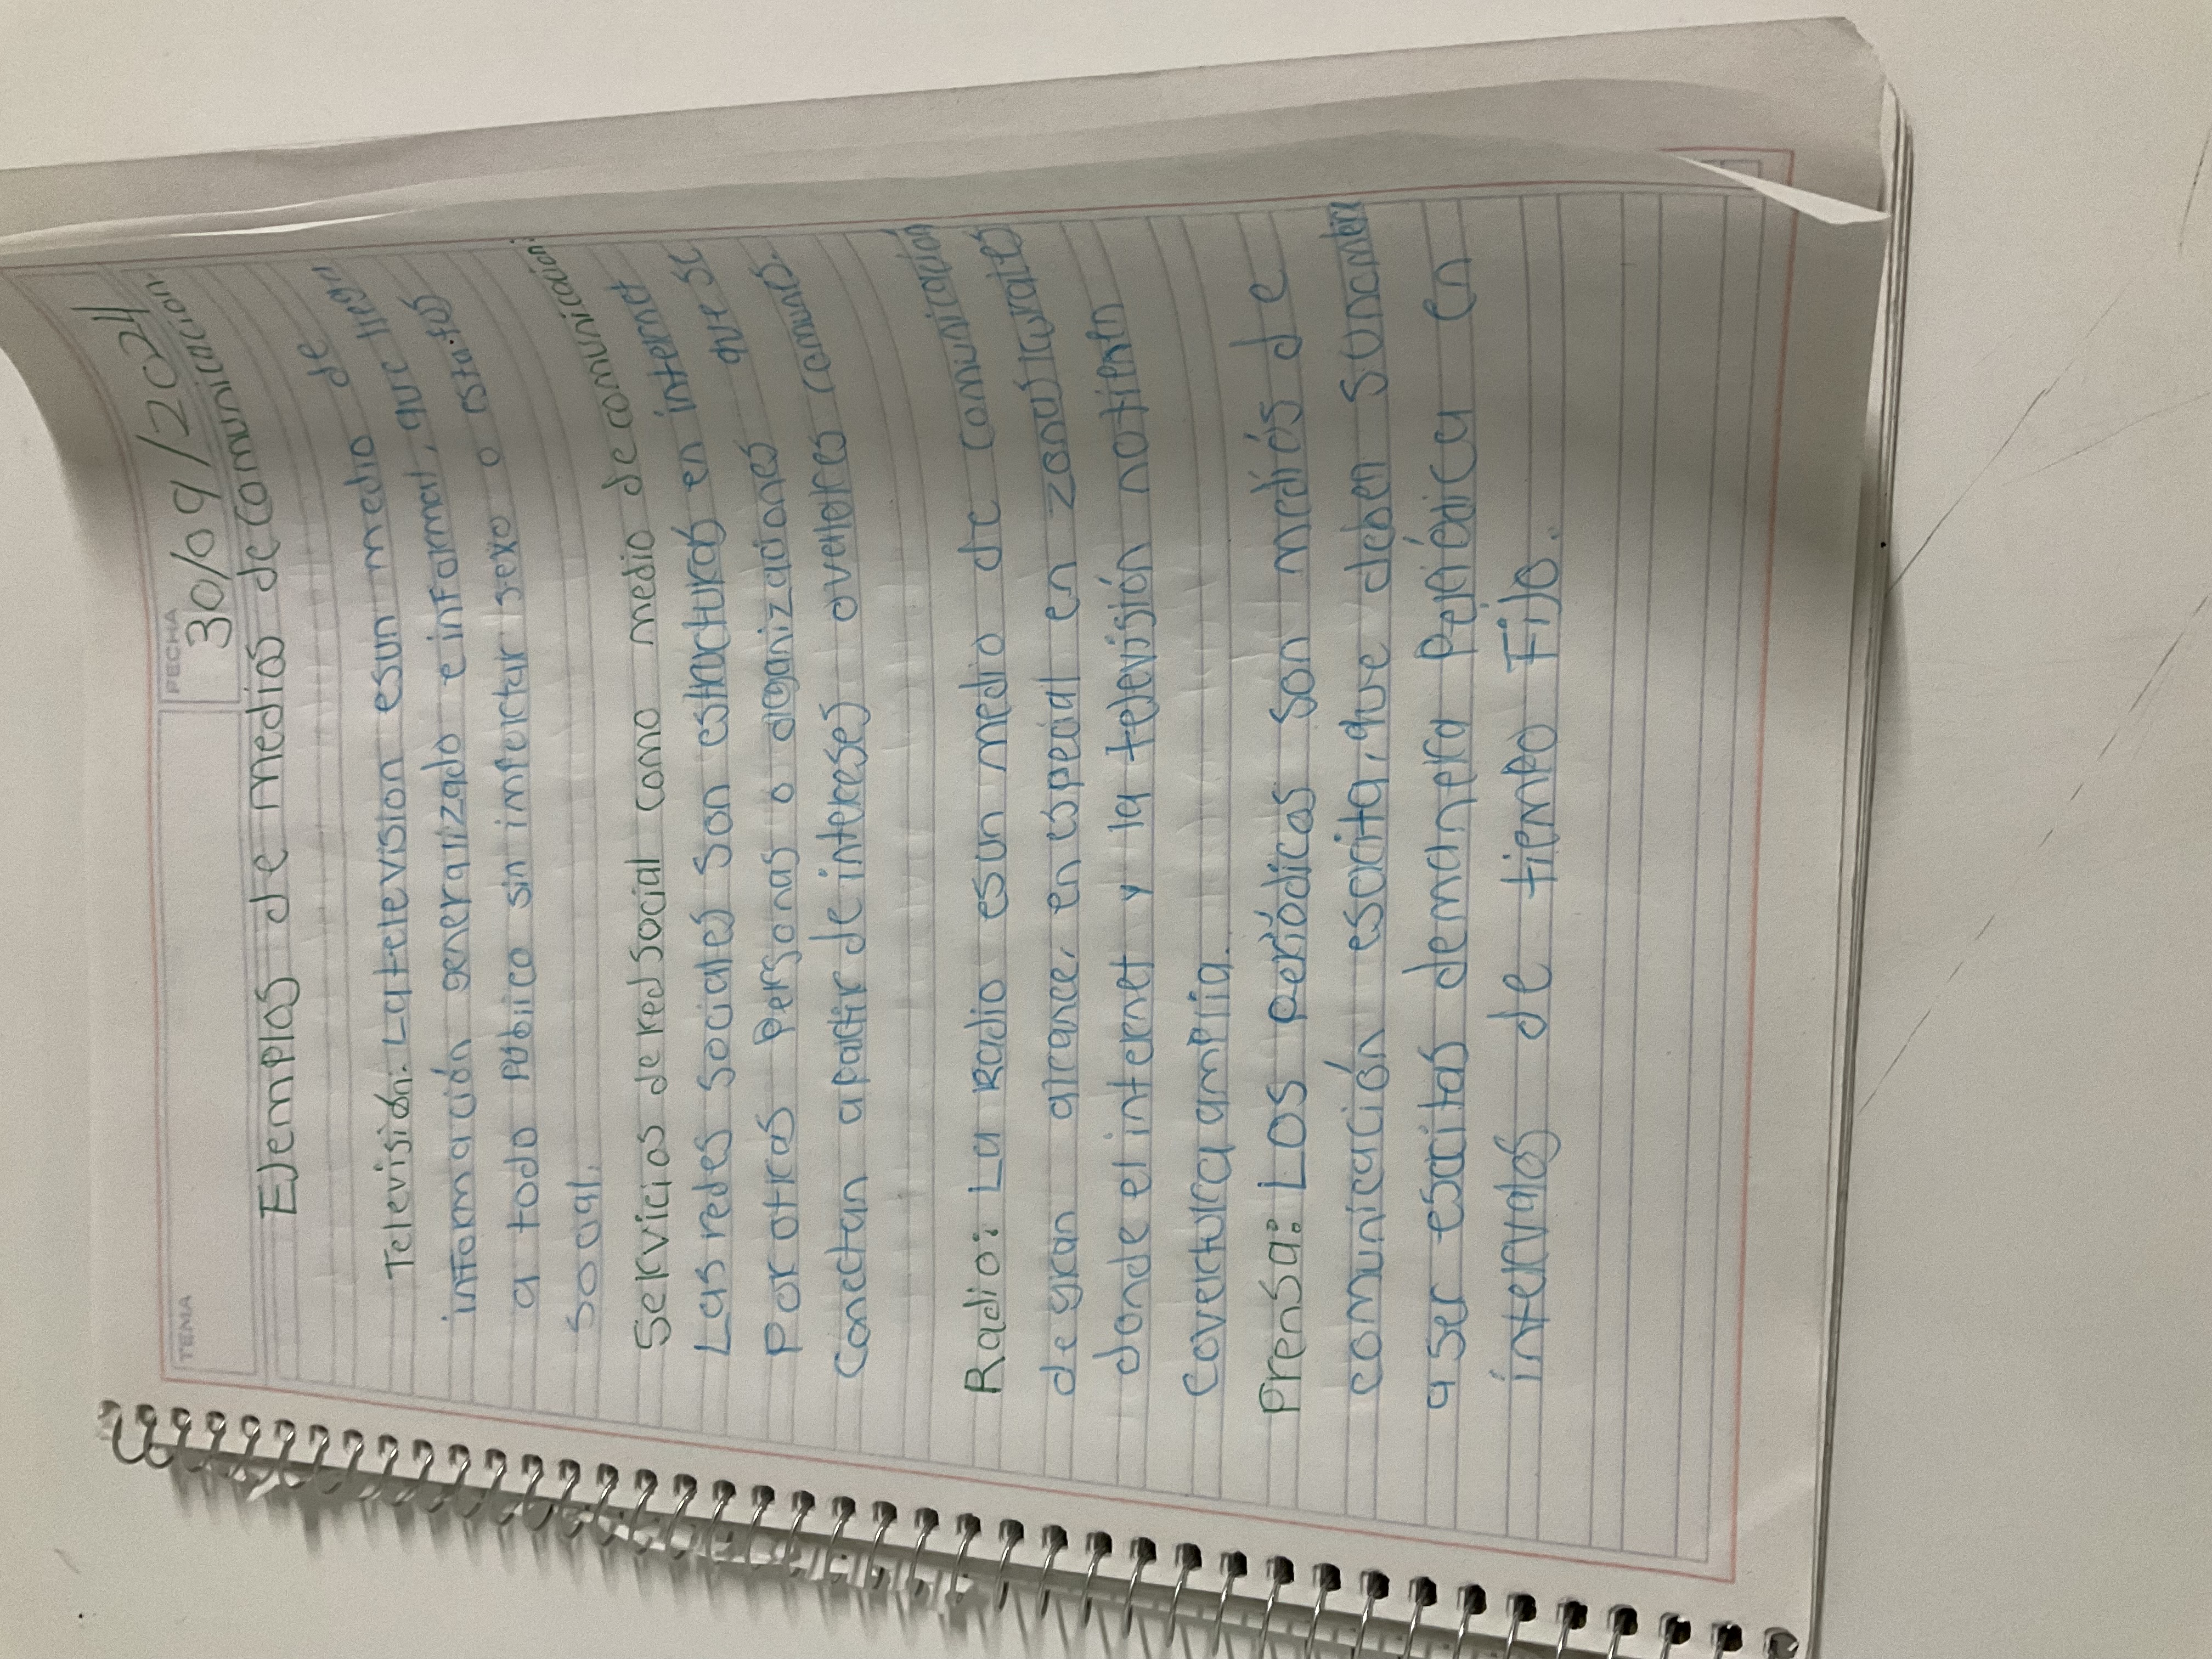 TEMA
FECHA
30/09/2024
Ejemplos de medios de comunicación
de comunicacion
Televisión: La television es un medio de
información generalizado e informal, que llegan
a todo publico sin infectar sexo o estatus
social.
Servicios de red social como medio de comunicación:
Las redes sociales son estructuras en internet
por otras personas o organizaciones que se
conectan a partir de intereses o valores comunes.
Radio: La Radio es un medio de comunicación
de gran alcance, en especial en zonas rurales
donde el internet y la televisión no tienen
covertura amplia.
Prensa: Los periódicos son medios de
comunicación escrita, que deben su nombre
a ser escritas de manera Periódica en
intervalos de tiempo Fijo.